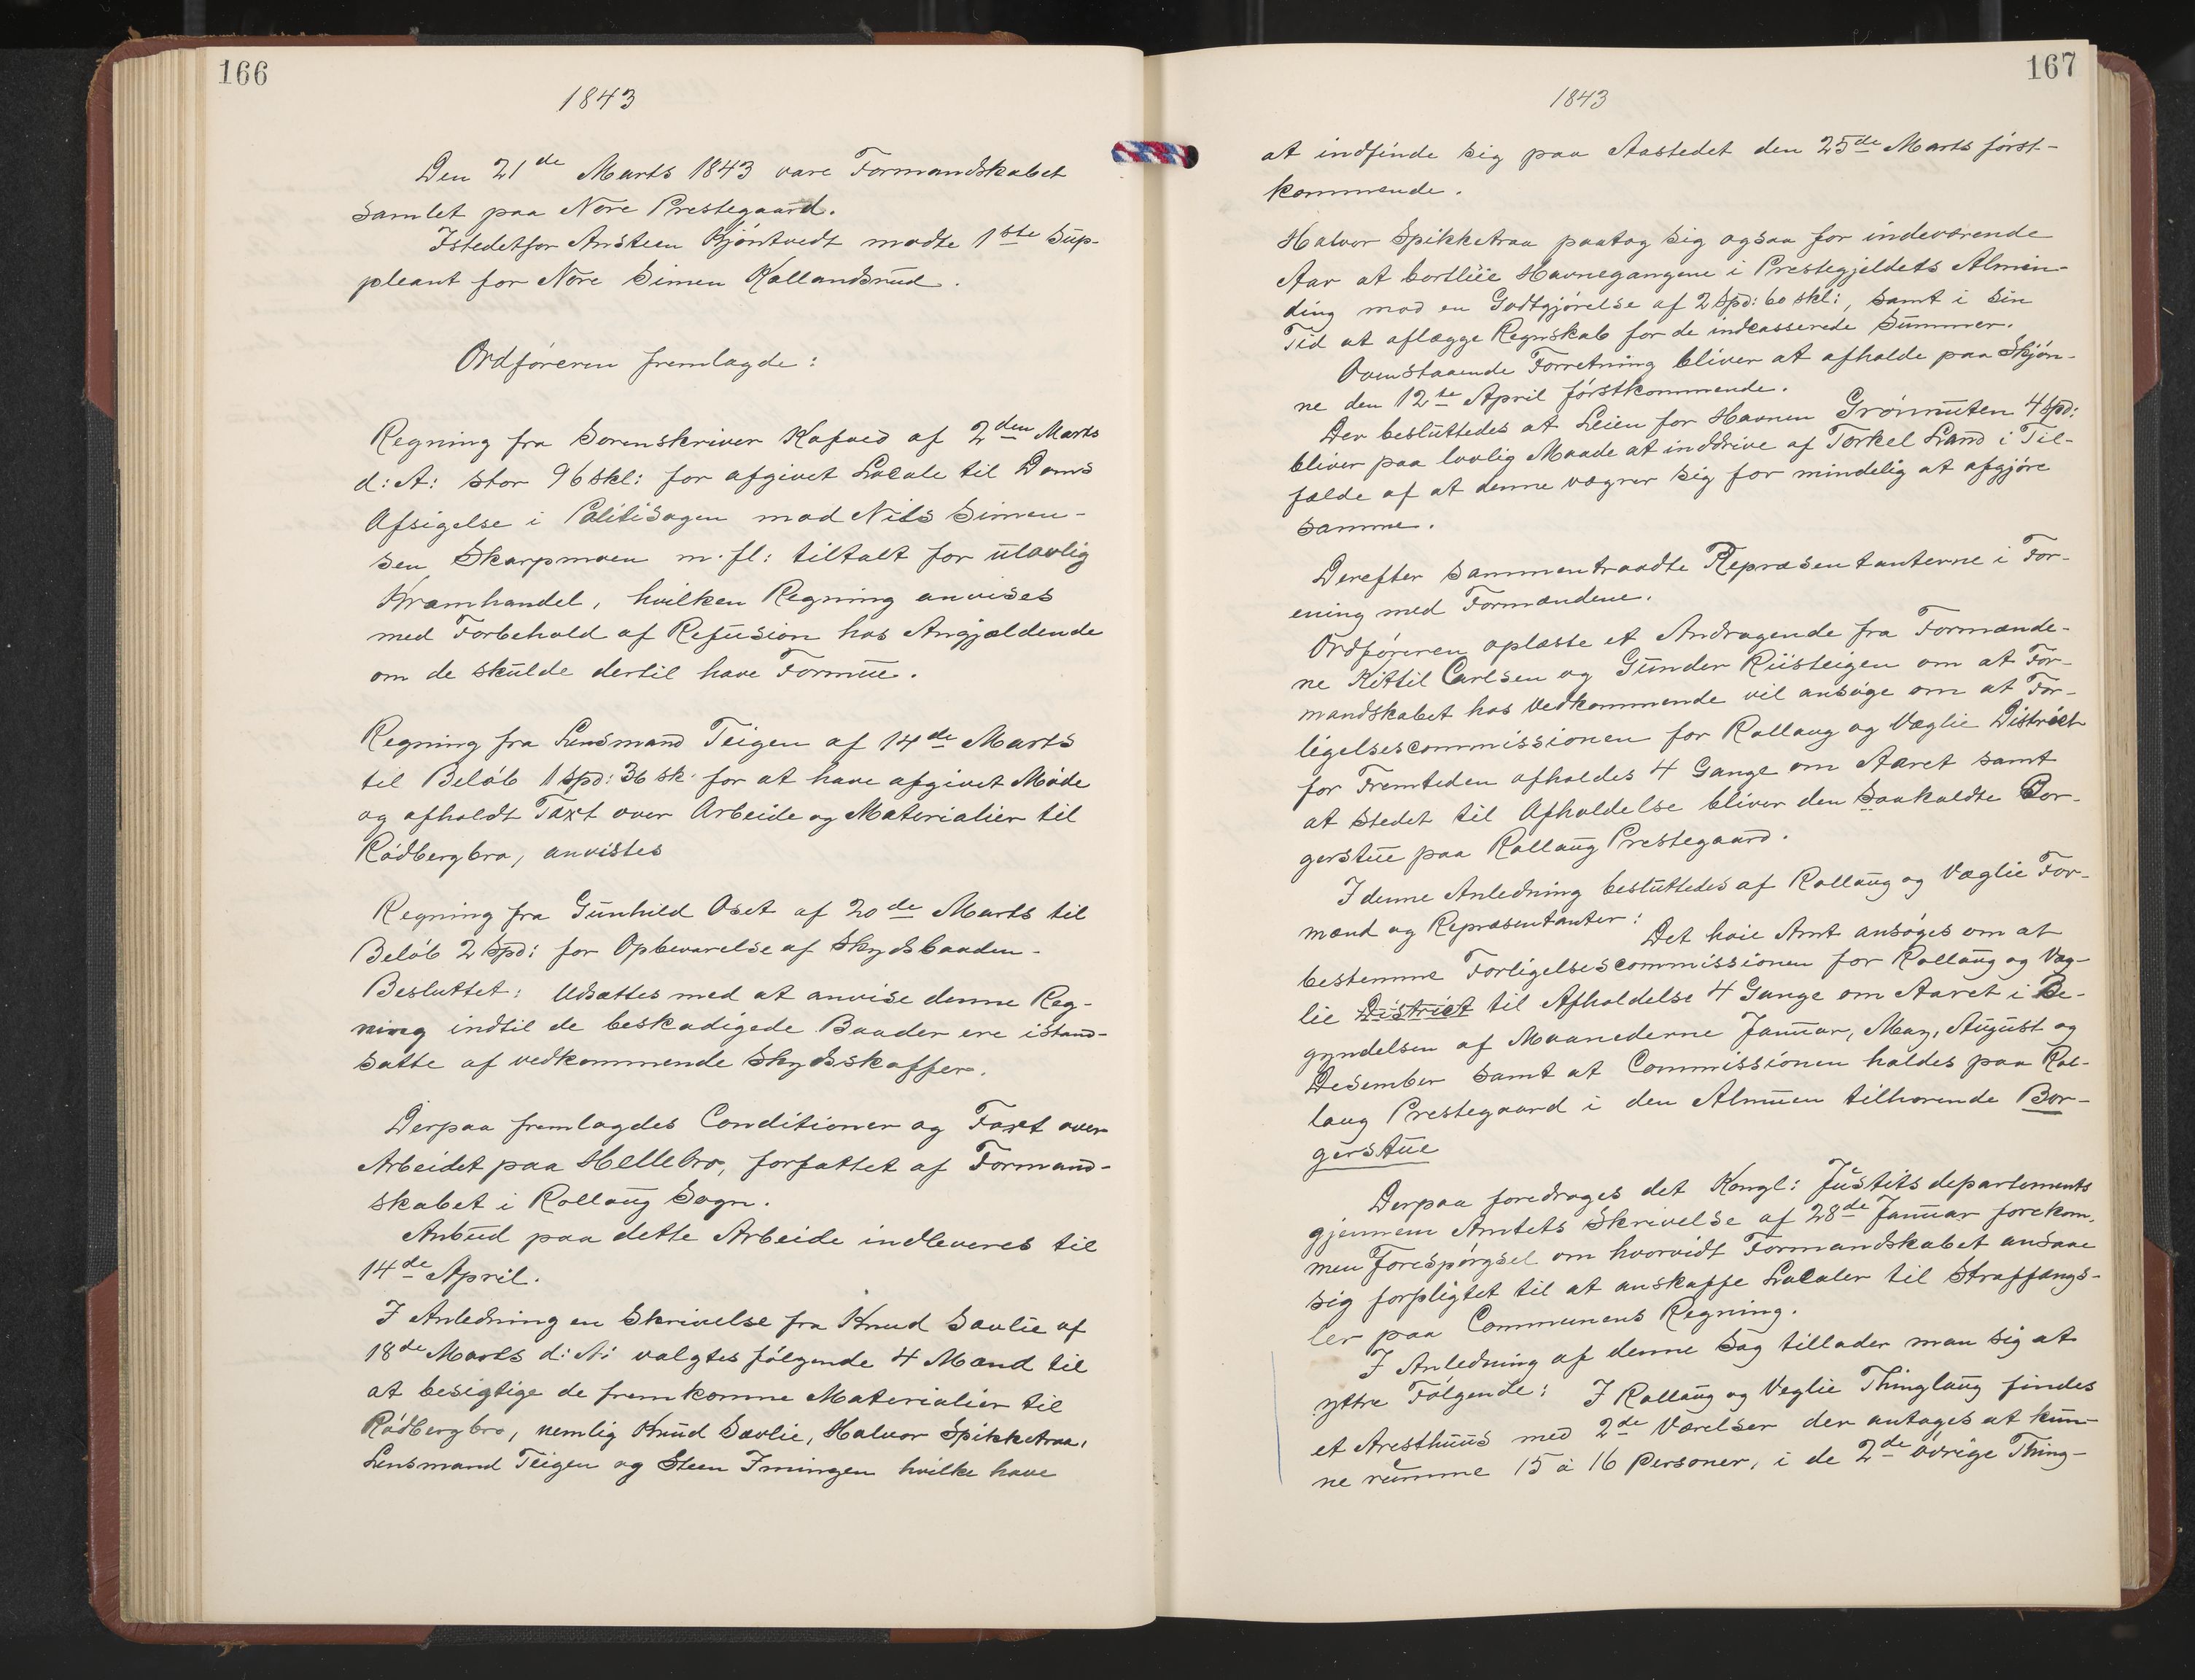 166
1843
Den 21de Marts 1843 vare Formandskabet
samlet paa Nore Prestegaard.
Istedetfor Ansteen Kjöntvedt mødte 1ste Sup-
pleant for Nore Simen Kallandsrud.
Ordføreren fremlagde:
Regning fra Sorenskriver Kafved af 2den Marts
d: A: stor 96 skl: for afgivet Locale til Doms
Afsigelse i Politisagen mod Nils Simen-
sen Skarpmoen m. fl: tiltalt for ulovlig
Kramhandel, hvilken Regning anvises
med Forbehold af Refusion hos Angjældende
om de skulde dertil have Formue.
Regning fra Lensmand Teigen af 14de Marts
til Beløb 1 Spd: 36 sk. for at have afgivet Møde
og afholdt Taxt over Arbeide og Materialier til
Rödbergbro, anvistes
Regning fra Gunhild Oset af 20de Marts til
Beløb 2 Spd: for Opbevarelse af Skydsbaaden.
Besluttet: Udsættes med at anvise denne Reg-
ning indtil de beskadigede Baader ere istand-
satte af vedkommende Skydsskaffer.
Derpaa fremlagdes Conditioner og Taxt over
Arbeidet paa Hellebro, forfattet af Formand-
skabet i Rollaug Sogn.
Anbud paa dette Arbeide indleveres til
14de April.
I Anledning en Skrivelse fra Knud Sævlie af
18de Marts d: A: valgtes følgende 4 Mænd til
at besigtige de fremkomne Materialier til
Rödbergbro, nemlig Knud Sævlie, Halvor Spikketraa,
Lensmand Teigen og Steen Imingen hvilke have
167
1843
at indfinde sig paa Aastedet den 25de Marts först-
kommende.
Halvor Spikketraa paatog sig ogsaa for indeværende
Aar at bortleie Havnegangene i Prestegjeldets Almin-
ding mod en Godtgjörelse af 2 Spd: 60 skl:, samt i sin
Tid at aflægge Regnskab for de indcasserede Summer.
Ovenstaaende Forretning bliver at afholde paa Skjön-
ne den 12te April förstkommende.
Der besluttedes at Leien for Havnen Grönnuten 4 Spd:
bliver paa lovlig Maade at inddrive af Torkel Lrand i Til-
fælde af at denne vægrer sig for mindelig at afgjöre
samme.
Derefter sammentraadte Repræsentanterne i For-
ening med Formændene.
Ordføreren oplæste et Andragende fra Formænde-
ne Kittil Carlsen og Gunder Rusteigen om at For-
mandskabet hos Vedkommende vil ansöge om at For-
ligelsescommissionen for Rollaug og Væglie District
for Fremtiden afholdes 4 Gange om Aaret samt
at Stedet til Afholdelse bliver den saakaldte Bor-
gerstue paa Rollaug Prestegaard.
I denne Anledning besluttedes af Rollaug og Væglie For-
mænd og Repræsentanter: Det høie Amt ansöges om at
bestemme Forligelsescommissionen for Rollaug og Væg-
lie District til Afholdelse 4 Gange om Aaret i Be-
gyndelsen af Maanederne Januar, May, August og
Desember samt at Commissionen holdes paa Rol-
laug Prestegaard i den Almuen tilhorende Bor-
gerstue
Derpaa foredroges det Kongl: Justitsdepartements
gjennem Amtets Skrivelse af 28de Januar forekom,
men Forespörgsel om hvorvidt Formandskabet ansaae
sig forpligtet til at anskaffe Localer til Straffængs-
ler paa Communens Regning.
I Anledning af denne Sag tillader man sig at
yttre Følgende: I Rollaug og Veglie Thinglaug findes
et Aresthuus med 2de Værelser der antages at kun-
ne rumme 15 à 16 Personer, i de 2de övrige Thing-